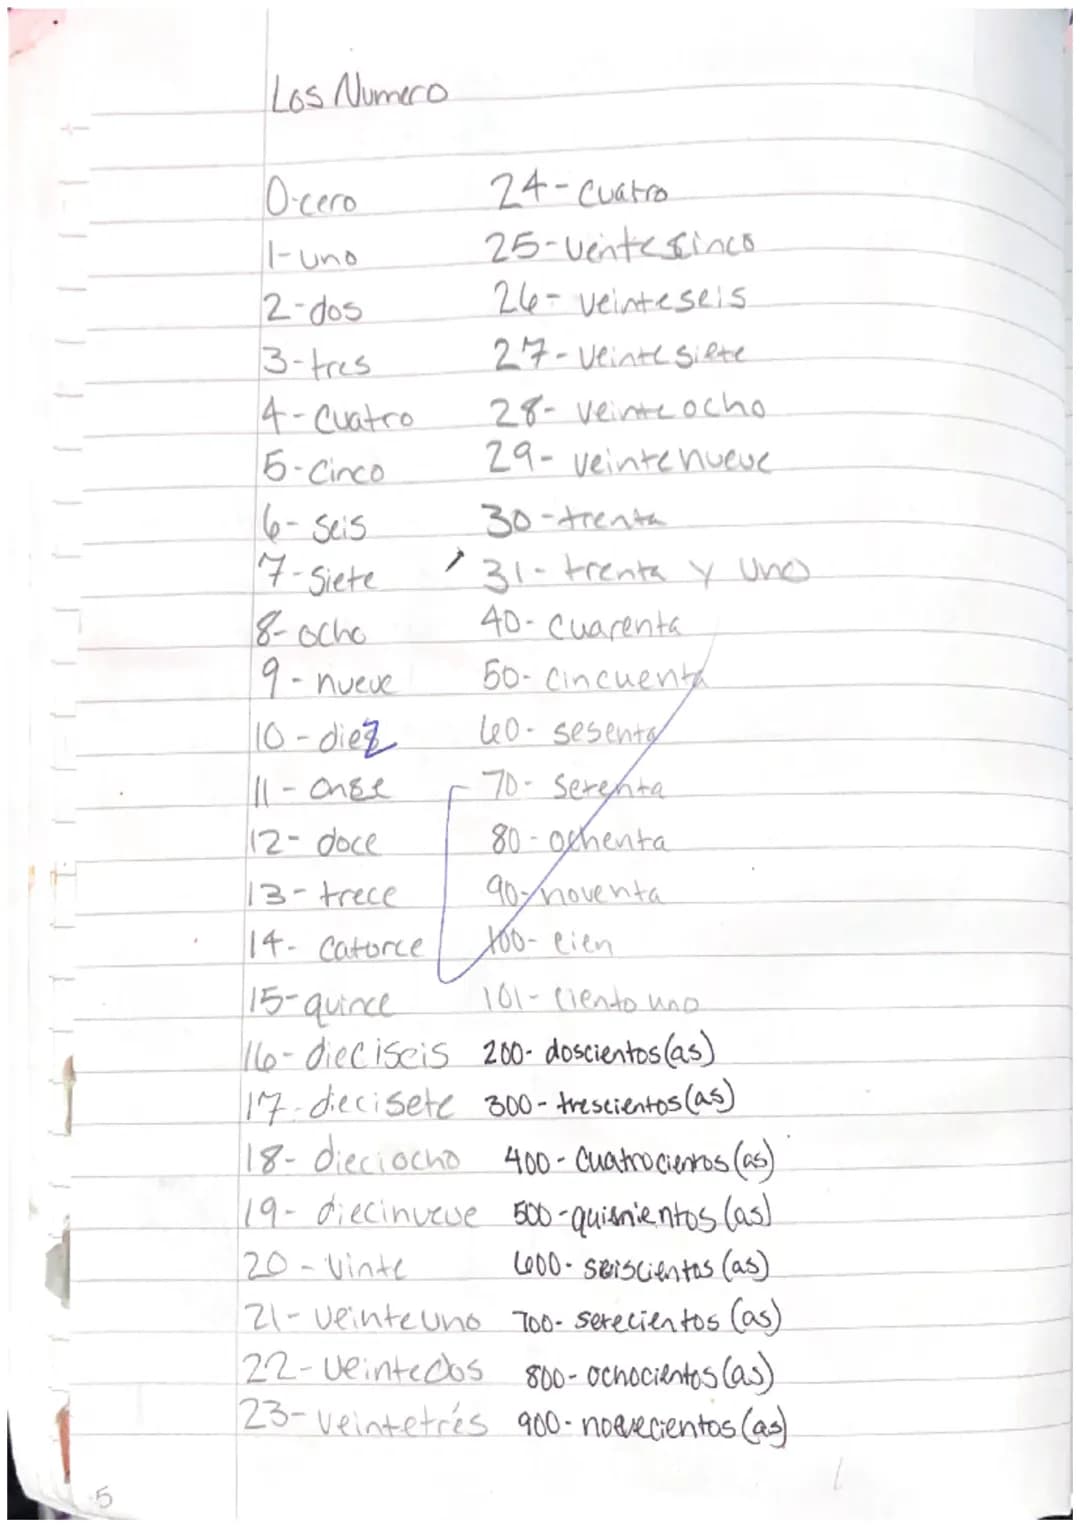 Los Numero
0-cero
1-uno
2-dos
3-tres
4-Cuatro
5-Cinco
6-Seis
7-Siete
8-ocho
9-nueve
10-diez
11-onze
12-doce
13-trece
14-Catorce
15-quince
16-dieciseis
17-diecisete
18-dieciocho
19-diecinueve
20-Vinte
21-veinteuno
22-veintedos
23-veintetrés
24-Cuatro
25-ventecinco
26-veinteseis
27-Veintesiete
28-veinteocho
29-veintenueve
30-trenta
31-trenta y uno
40-Cuarenta
50-Cincuenta
60-sesenta
70-Setenta
80-ochenta
90-noventa
100-cien
101-Ciento uno
200-doscientos(as)
300-trescientos(as)
400-Cuatrocientos(as)
500-quisnientos(as)
600-seiscientos(as)
700-setecientos(as)
800-ochocientos(as)
900-novecientos(as)
5